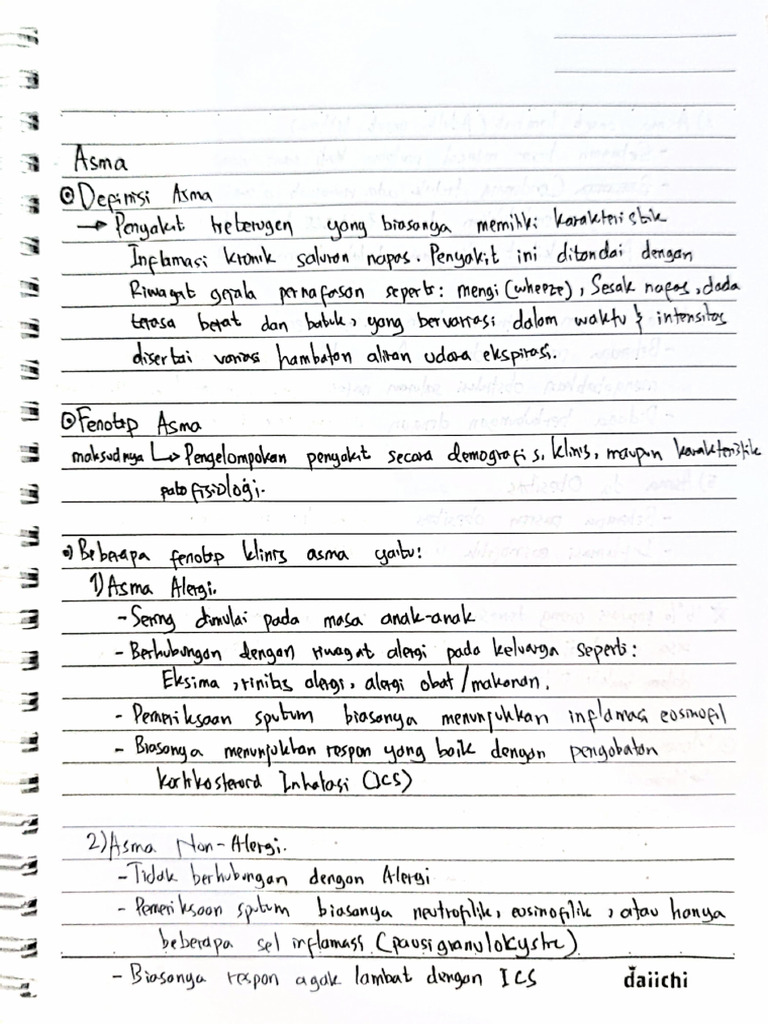 Asma
Definisi Asma
→ Penyakit heterogen yang biasanya memiliki karakteristik
Inflamasi kronik saluran napas. Penyakit ini ditandai dengan
Riwayat gejala pernafasan seperti: mengi (wheeze), Sesak napas, dada
terasa berat dan batuk, yang bervariasi dalam waktu & intensitas
disertai variasi hambatan aliran udara ekspirasi.
Fenotip Asma
maksudnya ↳ Pengelompokan penyakit secara demografis, klinis, maupun karakteristik
patofisiologi.
Beberapa fenotip klinis asma yaitu:
1) Asma Alergi.
- Sering dimulai pada masa anak-anak
- Berhubungan dengan riwayat alergi pada keluarga seperti:
Eksima, rinitis alergi, alergi obat/makanan.
- Pemeriksaan sputum biasanya menunjukkan inflamasi eosinofil
- Biasanya menunjukkan respon yang baik dengan pengobatan
kortikosteroid Inhalasi (ICS)
2) Asma Non-Alergi.
- Tidak berhubungan dengan Alergi
- Pemeriksaan sputum biasanya neutrofilik, eusinofilik, atau hanya
beberapa sel inflamasi (pausigranulokystic)
- Biasanya respon agak lambat dengan ICS
daiichi